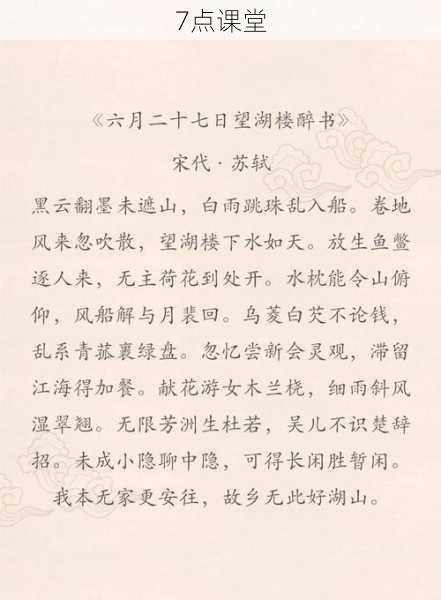 7点课堂
《六月二十七日望湖楼醉书》
宋代·苏轼
黑云翻墨未遮山，白雨跳珠乱入船。卷地
风来忽吹散，望湖楼下水如天。放生鱼鳖
逐人来，无主荷花到处开。水枕能令山俯
仰，风船解与月裴回。乌菱白芡不论钱，
乱系青菰裹绿盘。忽忆尝新会灵观，滞留
江海得加餐。献花游女木兰桡，细雨斜风
湿翠翘。无限芳洲生杜若，吴儿不识楚辞
招。未成小隐聊中隐，可得长闲胜暂闲。
我本无家更安往，故乡无此好湖山。